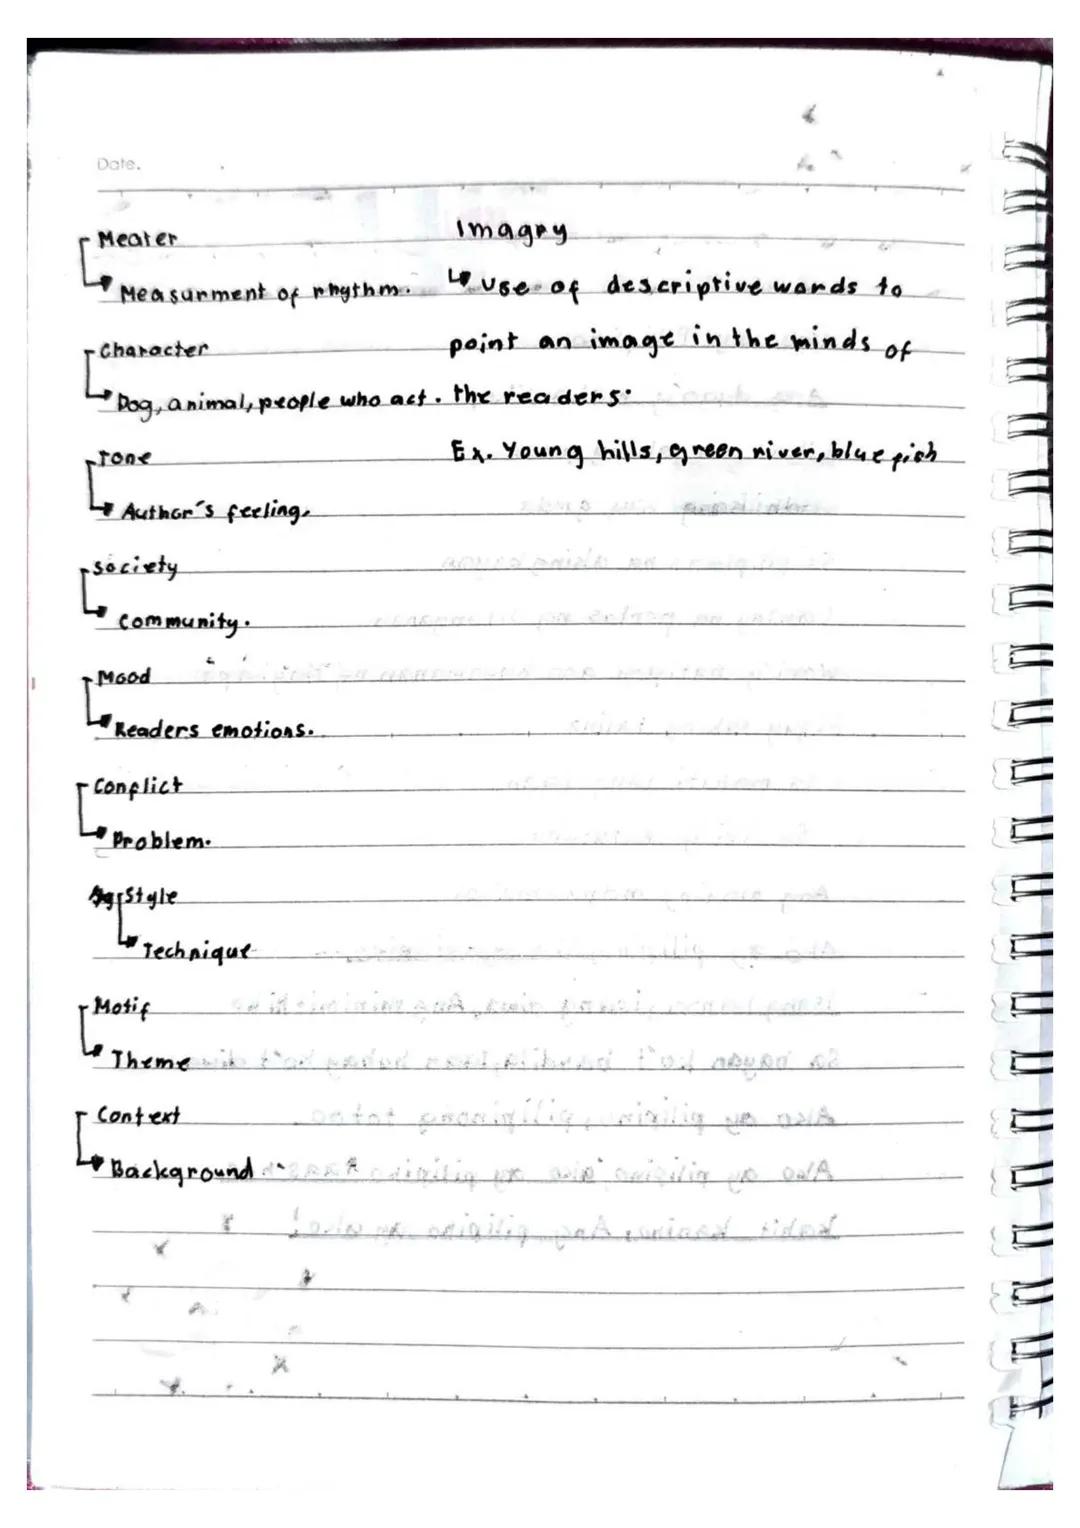 Date.
Meater
Measurment of rhythm.
Character
Dog, animal, people who act.
Tone
Author's feeling.
society
Community.
Mood
Readers emotions.
Conflict
Problem.
Style
Technique
Motif
Theme
Context
Background
Imagry
Use of descriptive words to
point an image in the minds of
the readers.
Ex. Young hills, green river, blue fish